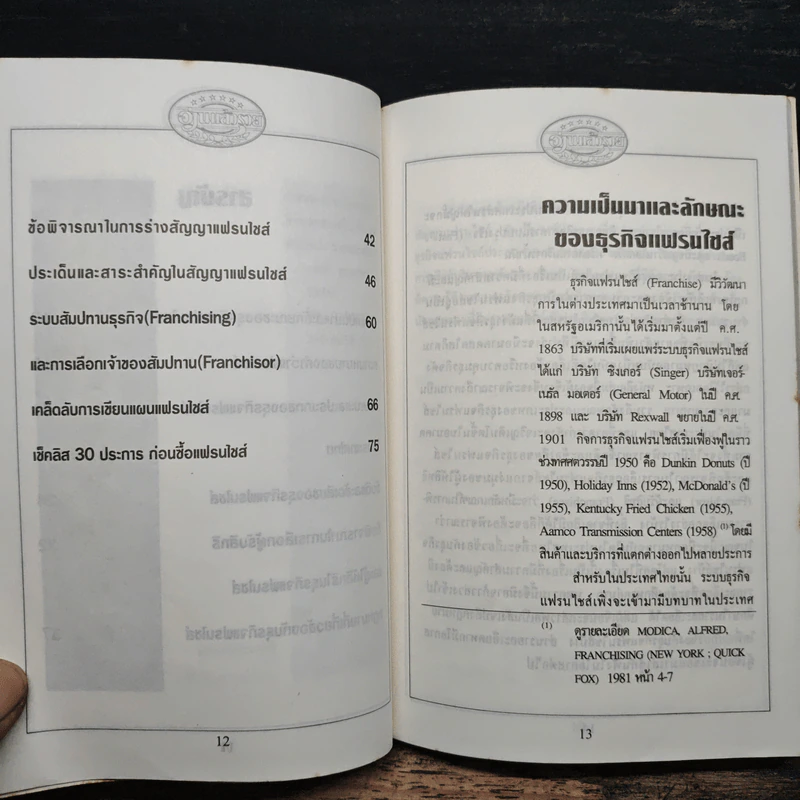 ข้อพิจารณาในการร่างสัญญาแฟรนไชส์ 42
ประเด็นและสาระสำคัญในสัญญาแฟรนไชส์ 46
ระบบสัมปทานธุรกิจ(Franchising) 60
และการเลือกเจ้าของสัมปทาน(Franchisor)
เคล็ดลับการเขียนแผนแฟรนไชส์ 66
เช็คลิส 30 ประการ ก่อนซื้อแฟรนไชส์ 75
12
ความเป็นมาและลักษณะ
ของธุรกิจแฟรนไชส์
ธุรกิจแฟรนไชส์ (Franchise) มีวิวัฒนา
การในต่างประเทศมาเป็นเวลาช้านาน โดย
ในสหรัฐอเมริกานั้นได้เริ่มมาตั้งแต่ปี ค.ศ.
1863 บริษัทที่เริ่มเผยแพร่ระบบธุรกิจแฟรนไชส์
ได้แก่ บริษัท ซิงเกอร์ (Singer) บริษัทเจอร์-
เนรัล มอเตอร์ (General Motor) ในปี ค.ศ.
1898 และ บริษัท Rexwall ขยายในปี ค.ศ.
1901 กิจการธุรกิจแฟรนไชส์เริ่มเฟื่องฟูในราว
ช่วงทศศตวรรษปี 1950 คือ Dunkin Donuts (ปี
1950), Holiday Inns (1952), McDonald's (ปี
1955), Kentucky Fried Chicken (1955),
Aamco Transmission Centers (1958) (1) โดยมี
สินค้าและบริการที่แตกต่างออกไปหลายประการ
สำหรับในประเทศไทยนั้น ระบบธุรกิจ
แฟรนไชส์เพิ่งจะเข้ามามีบทบาทในประเทศ
(1) ดูรายละเอียด MODICA, ALFRED,
FRANCHISING (NEW YORK ; QUICK
FOX) 1981 หน้า 4-7
13